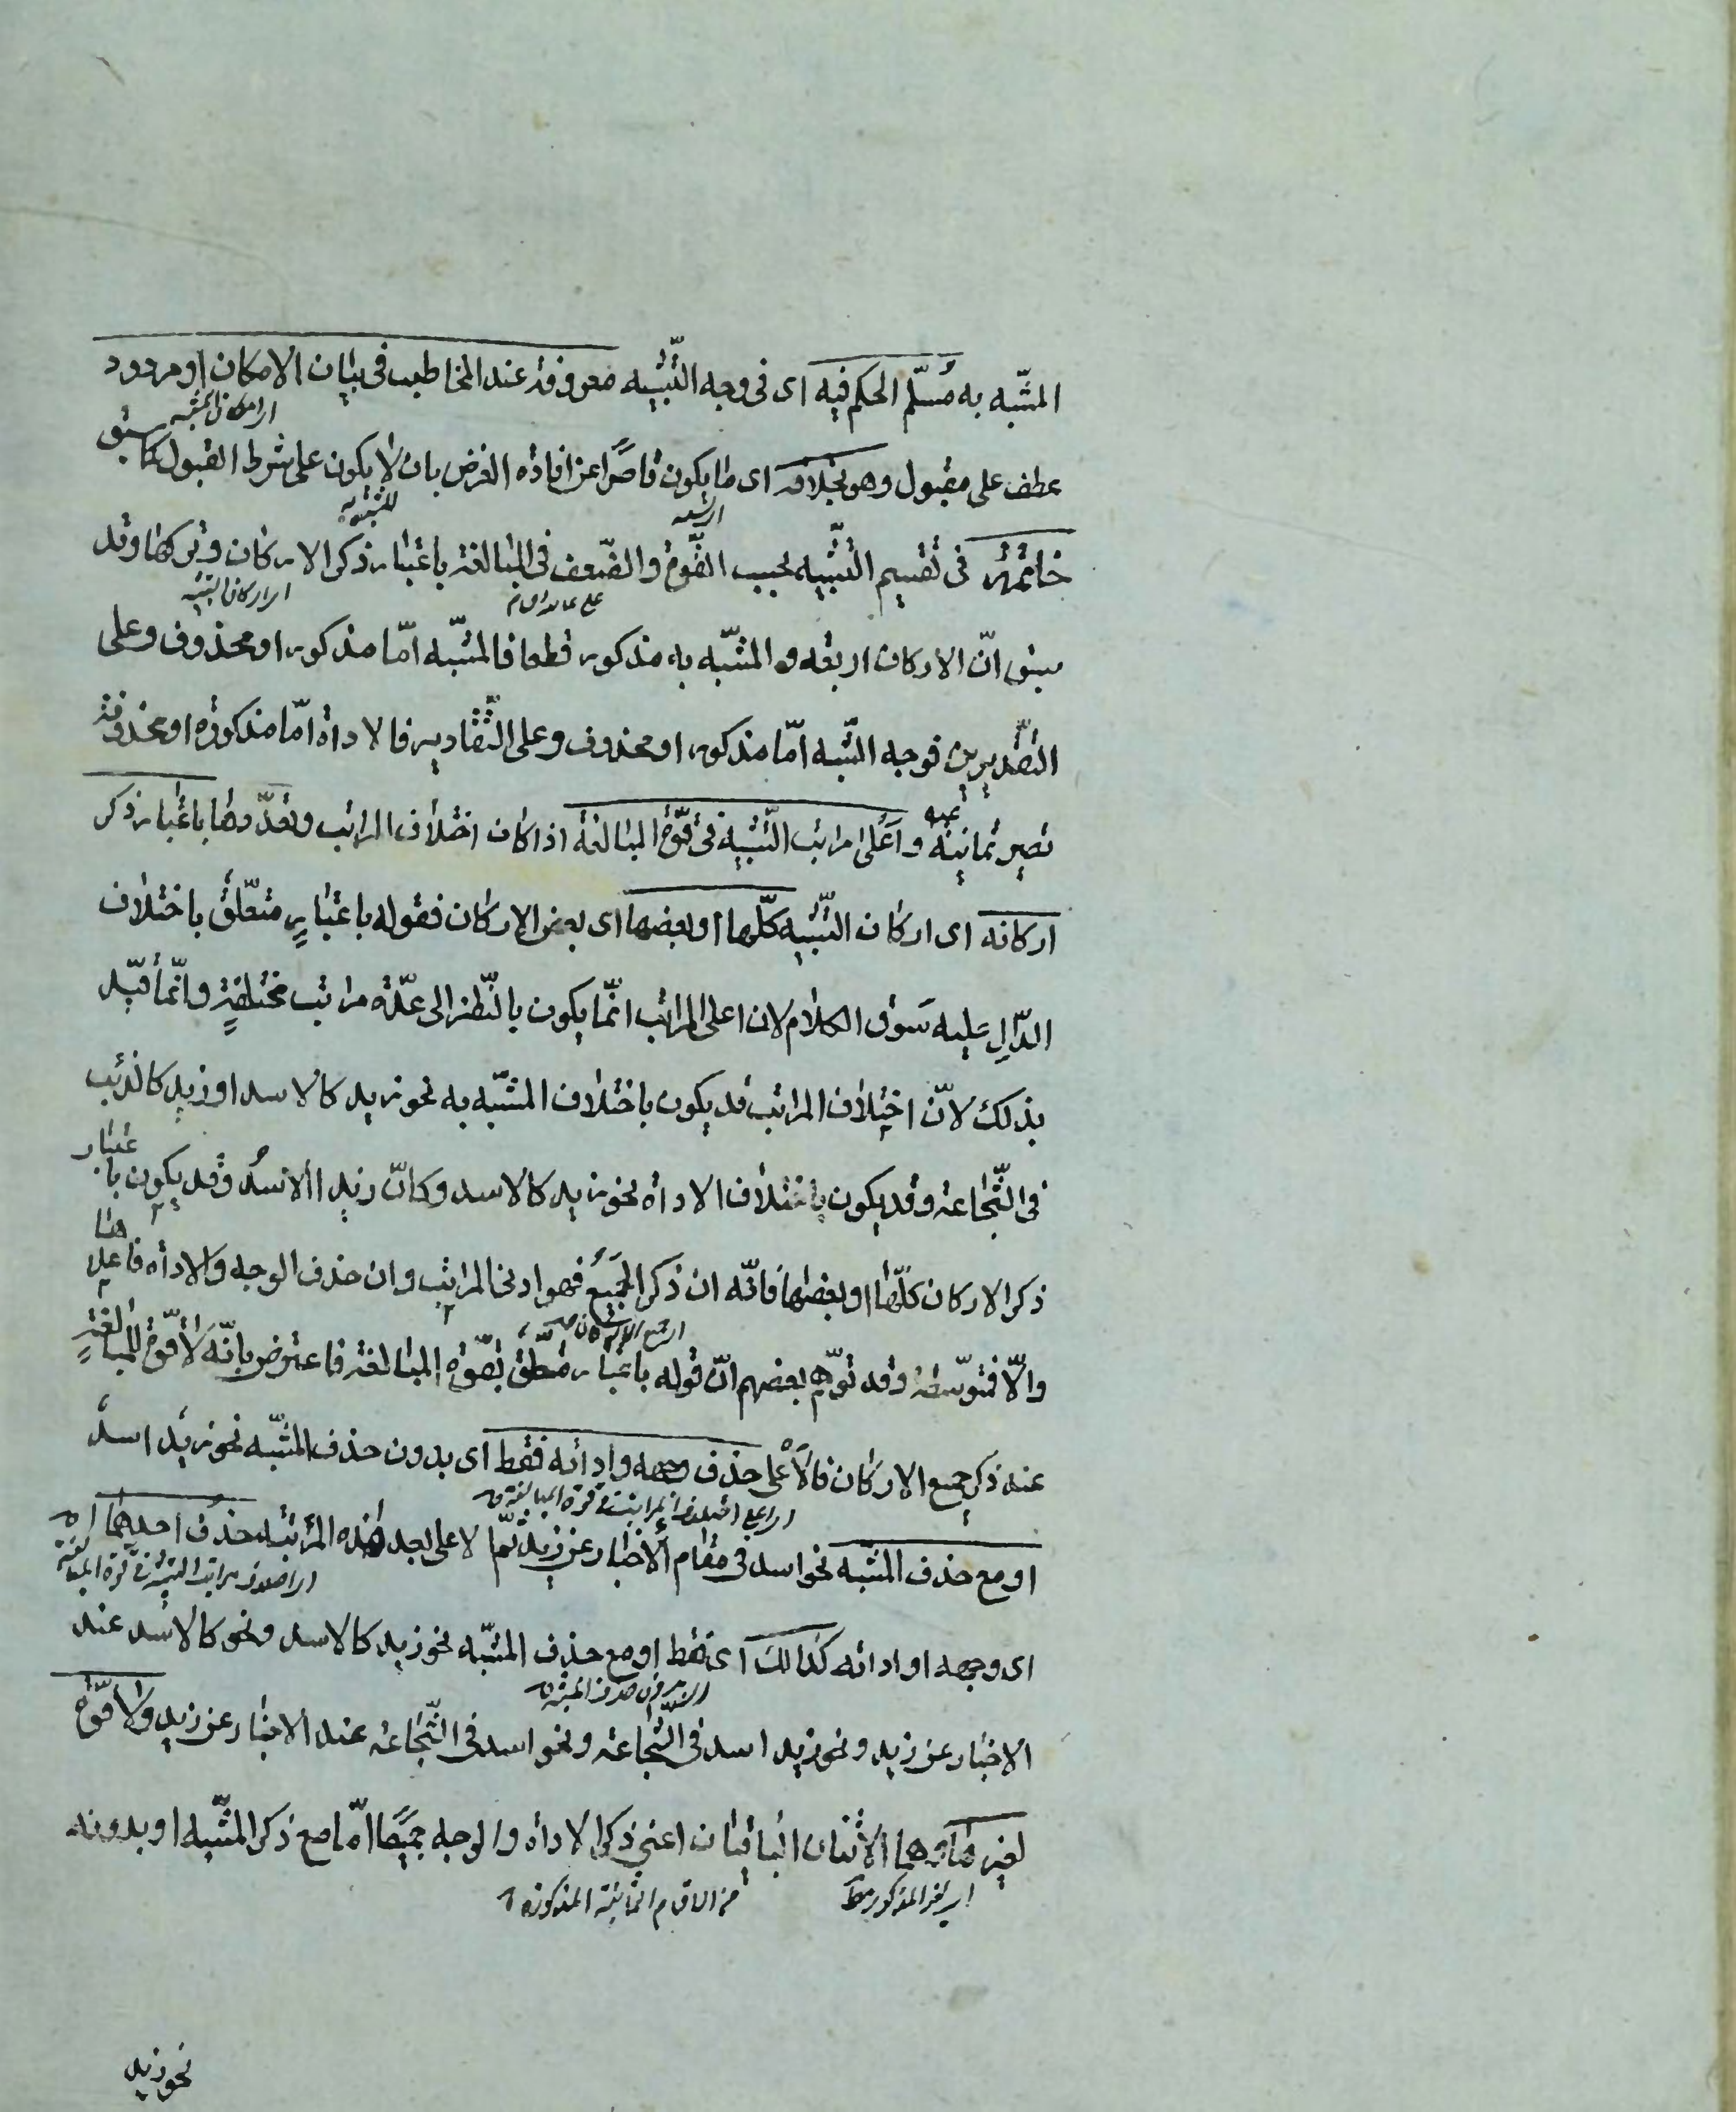 المشبه به مُسلّم الحكم فيه اى فى وجه التّشبيه معروفة عند المخاطب فى بيان الامكان او مردود
اى امكان المشبه
عطف على مقبول وهو بخلافه اى ما يكون قاصرًا عن افادة الغرض بان لا يكون على شرط القبول كما سبق
خاتمة فى تقسيم التّشبيه بحسب القوّة والضّعف فى المبالغة باعتبار ذكر الاركان وتركها وقد
اى اركان التشبيه
سبق انّ الاركان اربعة والمشبّه به مذكور قطعا فالمشبّه امّا مذكور او محذوف وعلى
التقديرين فوجه الشّبه امّا مذكور او محذوف وعلى التّقادير فالاداة امّا مذكورة او محذوفة
تصير ثمانية واَعلى مراتب التّشبيه فى قوّة المبالغة اذا كان اختلاف المراتب وتعدّدها باعتبار ذكر
اركانه اى اركان التّشبيه كلّها او بعضها اى بعض الاركان فقوله باعتبارٍ متعلّق باختلاف
الدّالِ عليه سَوق الكلام لان اعلى المراتب انّما يكون بالنّظر الى عدّة مراتب مختلفةٍ وانّما قيّد
بذلك لانّ اختلاف المراتب قد يكون باختلاف المشبّه به نحو زيد كالاسد او زيد كالذئب
فى الشّجاعة وقد يكون باختلاف الاداة نحو زيد كالاسد وكانّ زيد االاسدُ وقد يكون باعتبار
ذكر الاركان كلّها او بعضها فانّه ان ذكر الجميعُ فهو ادنى المراتب وان حذف الوجه والاداة فاعلاها
والّا فمتوسّطة وقد توهّم بعضهم انّ قوله باعتبار متعلّق بقوّة المبالغة فاعترض بانّه لا قوّة للمبالغةٍ
عند ذكر جميع الاركان فالاَعلى حذف وجهه واداته فقط اى بدون حذف المشبّه نحو زيد اسدٌ
او مع حذف المشبّه نحو اسد فى مقام الاخبار عن زيد ثمّ الاعلى بعد هذه المرتبة حذف احدهما
اى وجهه او اداته كذالك اى فقط او مع حذف المشبّه نحو زيد كالاسد ونحو كالاسد عند
الاخبار عن زيد ونحو زيد اسد فى الشّجاعة ونحو اسد فى الشّجاعة عند الاخبار عن زيد ولا قوّة
لغيرهما وهما الاثنان الباقيان اعنى ذكر الاداة والوجه جميعًا امّا مع ذكر المشبّه او بدونه
من الاقسام الثمانية المذكورة
نحو زيد